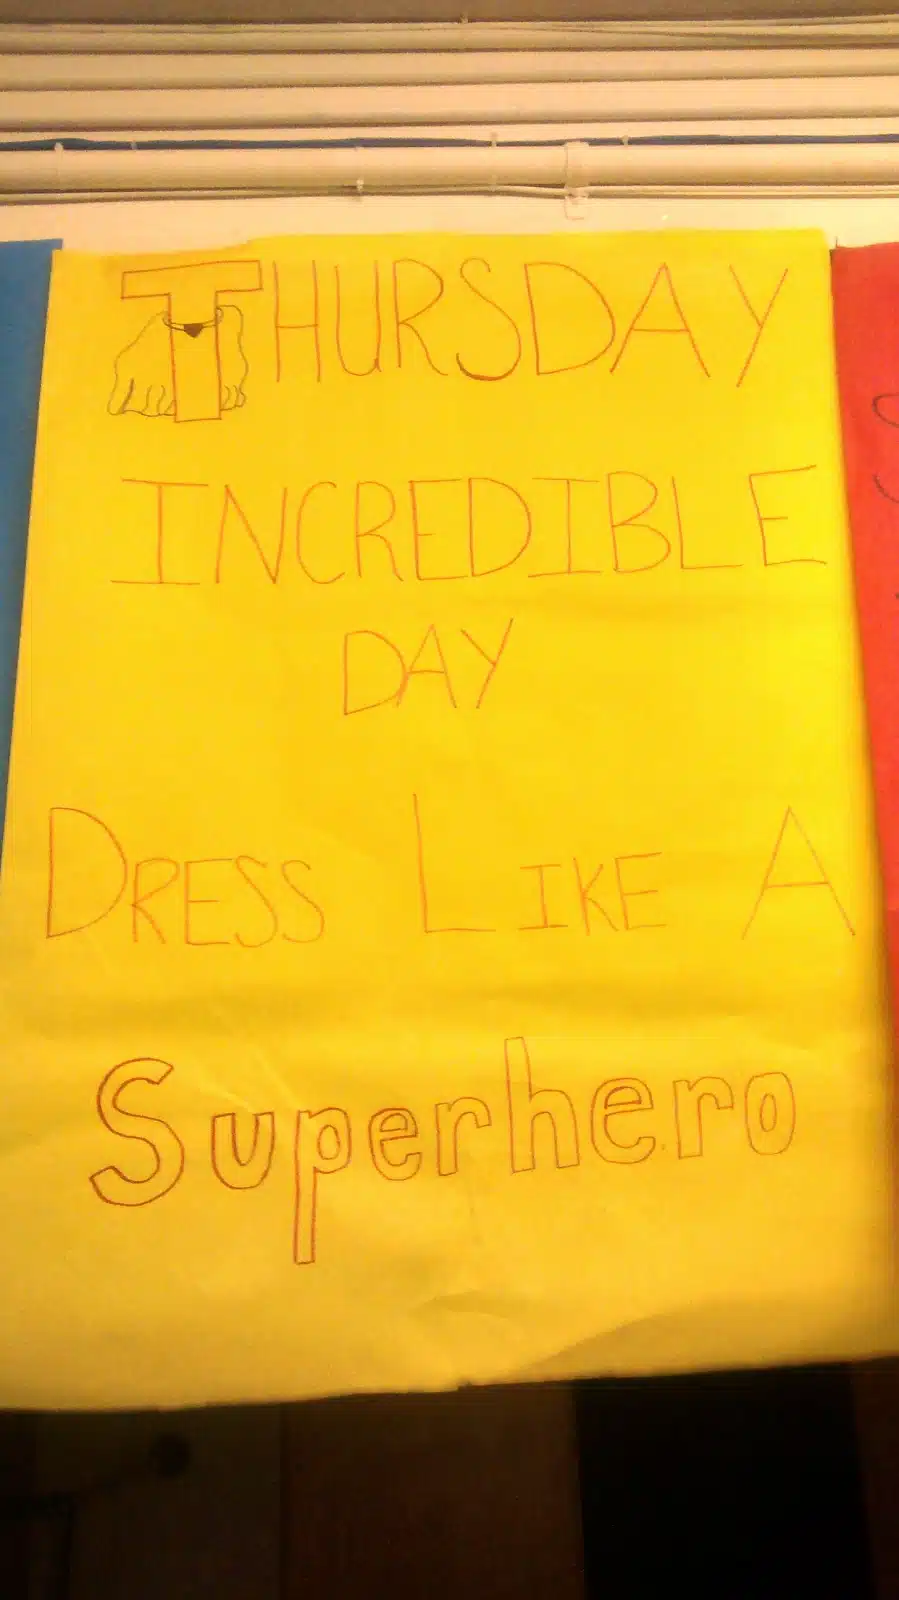 THURSDAY
INCREDIBLE
DAY
DRESS LIKE A
Superhero